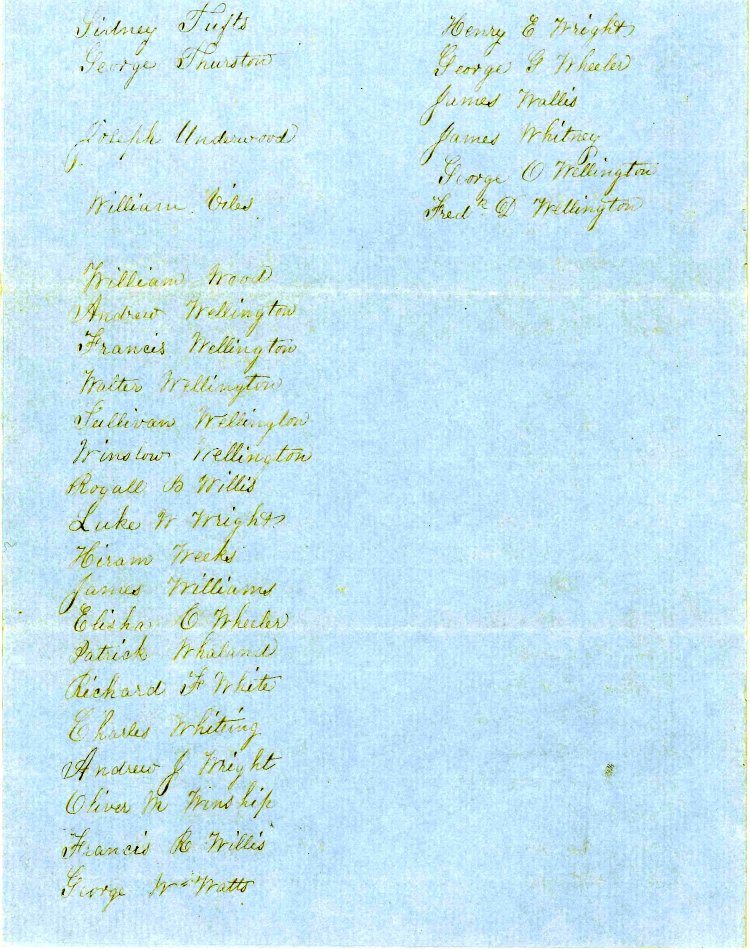 Sidney Tufts
George Thurston
Joseph Underwood
William Viles
William Wood
Andrew Wellington
Francis Wellington
Walter Wellington
Sullivan Wellington
Winslow Wellington
Royall B Willis
Luke W Wright
Hiram Weeks
James Williams
Elisha C Wheeler
Patrick Whalund
Richard F White
Charles Whiting
Andrew J Wright
Oliver M Winship
Francis R Willis
George Wm Watts
Henry E Wright
George G Wheeler
James Wallis
James Whitney
George O Wellington
Fredk D Wellington